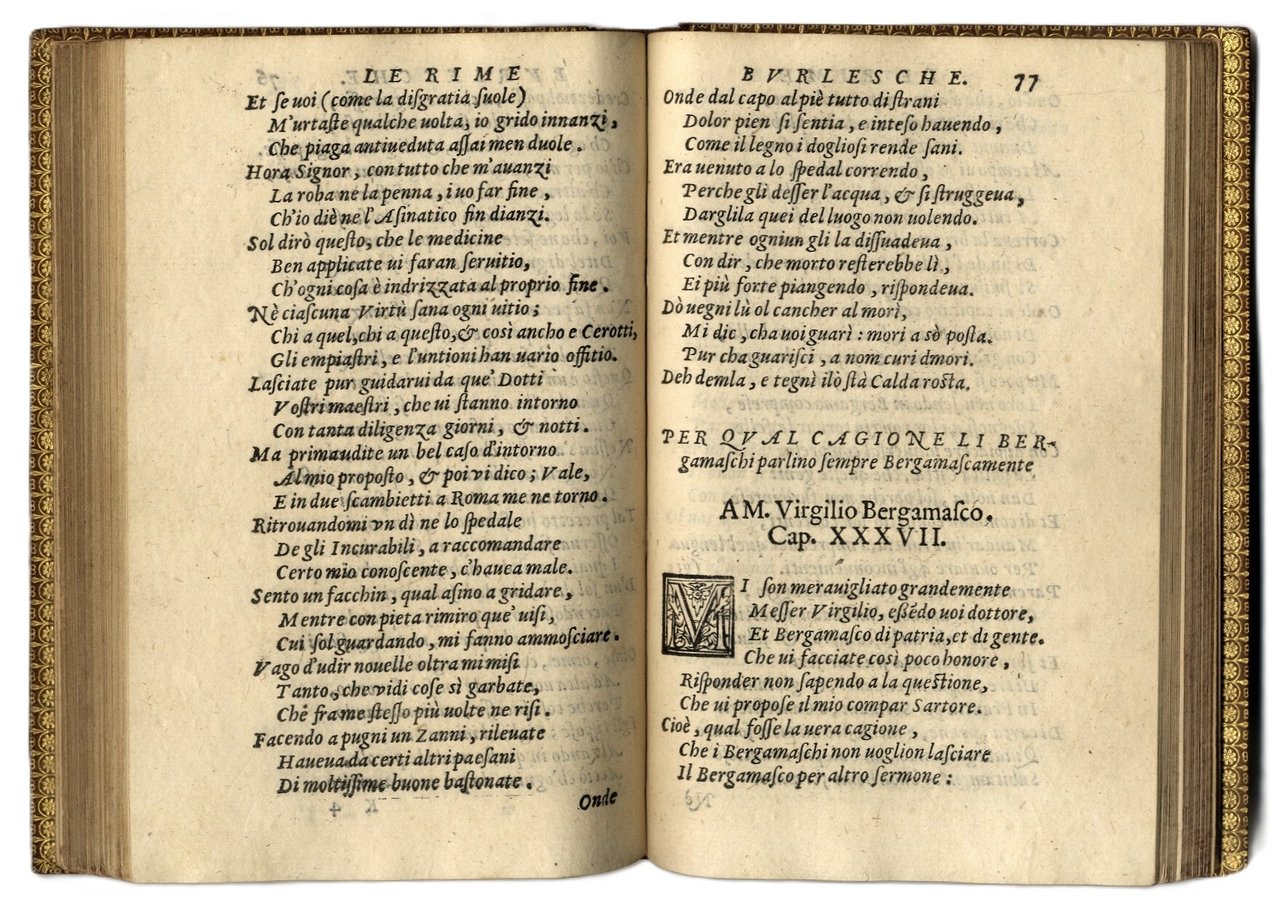 LE RIME
Et ſe uoi (come la diſgratia ſuole)
M'urtaſte qualche uolta, io grido innanzi,
Che piaga antiueduta aſſai men duole.
Hora Signor, con tutto che m'auanzi
La roba ne la penna, i uo far fine,
Ch'io diè ne l'Aſinatico fin dianzi.
Sol dirò queſto, che le medicine
Ben applicate ui faran ſeruitio,
Ch'ogni coſa è indrizzata al proprio fine.
Nè ciaſcuna Virtù ſana ogni uitio;
Chi a quel, chi a queſto, & così ancho e Cerotti,
Gli empiaſtri, e l'untioni han uario offitio.
Laſciate pur guidarui da que' Dotti
Voſtri maeſtri, che ui ſtanno intorno
Con tanta diligenza giorni, & notti.
Ma prima udite un bel caſo d'intorno
Al mio propoſto, & poi vi dico; Vale,
E in due ſcambietti a Roma me ne torno.
Ritrouandomi vn dì ne lo ſpedale
De gli Incurabili, a raccomandare
Certo mio conoſcente, c'hauea male.
Sento un facchin, qual aſino a gridare,
Mentre con pieta rimiro que' uiſi,
Cui ſol guardando, mi fanno ammoſciare.
Vago d'udir nouelle oltra mi miſi
Tanto, che vidi coſe sì garbate,
Che fra me ſteſſo più uolte ne riſi.
Facendo a pugni un Zanni, rileuate
Haueua da certi altri paeſani
Di moltiſſime buone baſtonate.
K 4
Onde
BVRLESCHE. 77
Onde dal capo al piè tutto di ſtrani
Dolor pien ſi ſentia, e inteſo hauendo,
Come il legno i doglioſi rende ſani.
Era uenuto a lo ſpedal correndo,
Perche gli deſſer l'acqua, & ſi ſtruggeua,
Darglila quei del luogo non uolendo.
Et mentre ogniun gli la diſſuadeua,
Con dir, che morto reſterebbe lì,
Ei più forte piangendo, riſpondeua.
Dò uegni lù ol cancher al morì,
Mi dic, cha uoi guarì: mori a sò poſta.
Pur cha guariſci, a nom curi d mori.
Deh demla, e tegnì ilò ſtà Calda roſta.
PER QVAL CAGIONE LI BER-
gamaſchi parlino ſempre Bergamaſcamente
A M. Virgilio Bergamaſco.
Cap. XXXVII.
MI ſon merauigliato grandemente
Meſſer Virgilio, eßẽdo uoi dottore,
Et Bergamaſco di patria, et di gente.
Che ui facciate così poco honore,
Riſponder non ſapendo a la queſtione,
Che ui propoſe il mio compar Sartore.
Cioè, qual foſſe la uera cagione,
Che i Bergamaſchi non uoglion laſciare
Il Bergamaſco per altro ſermone: